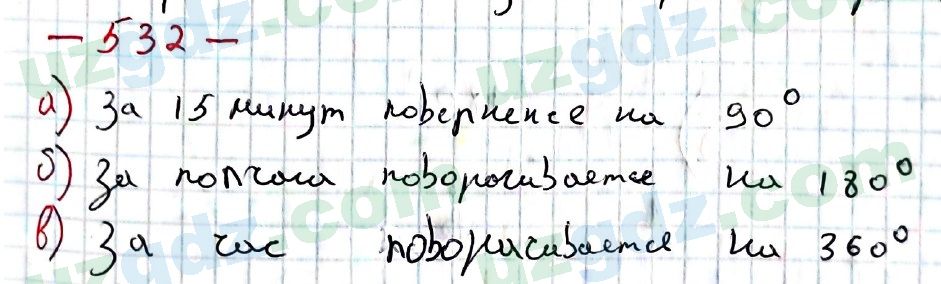 - 532 -
а) За 15 минут поверненсе на 90°
б) За полчаса поворачивается на 180°
в) За час поворачивается на 360°
uzgdz.com